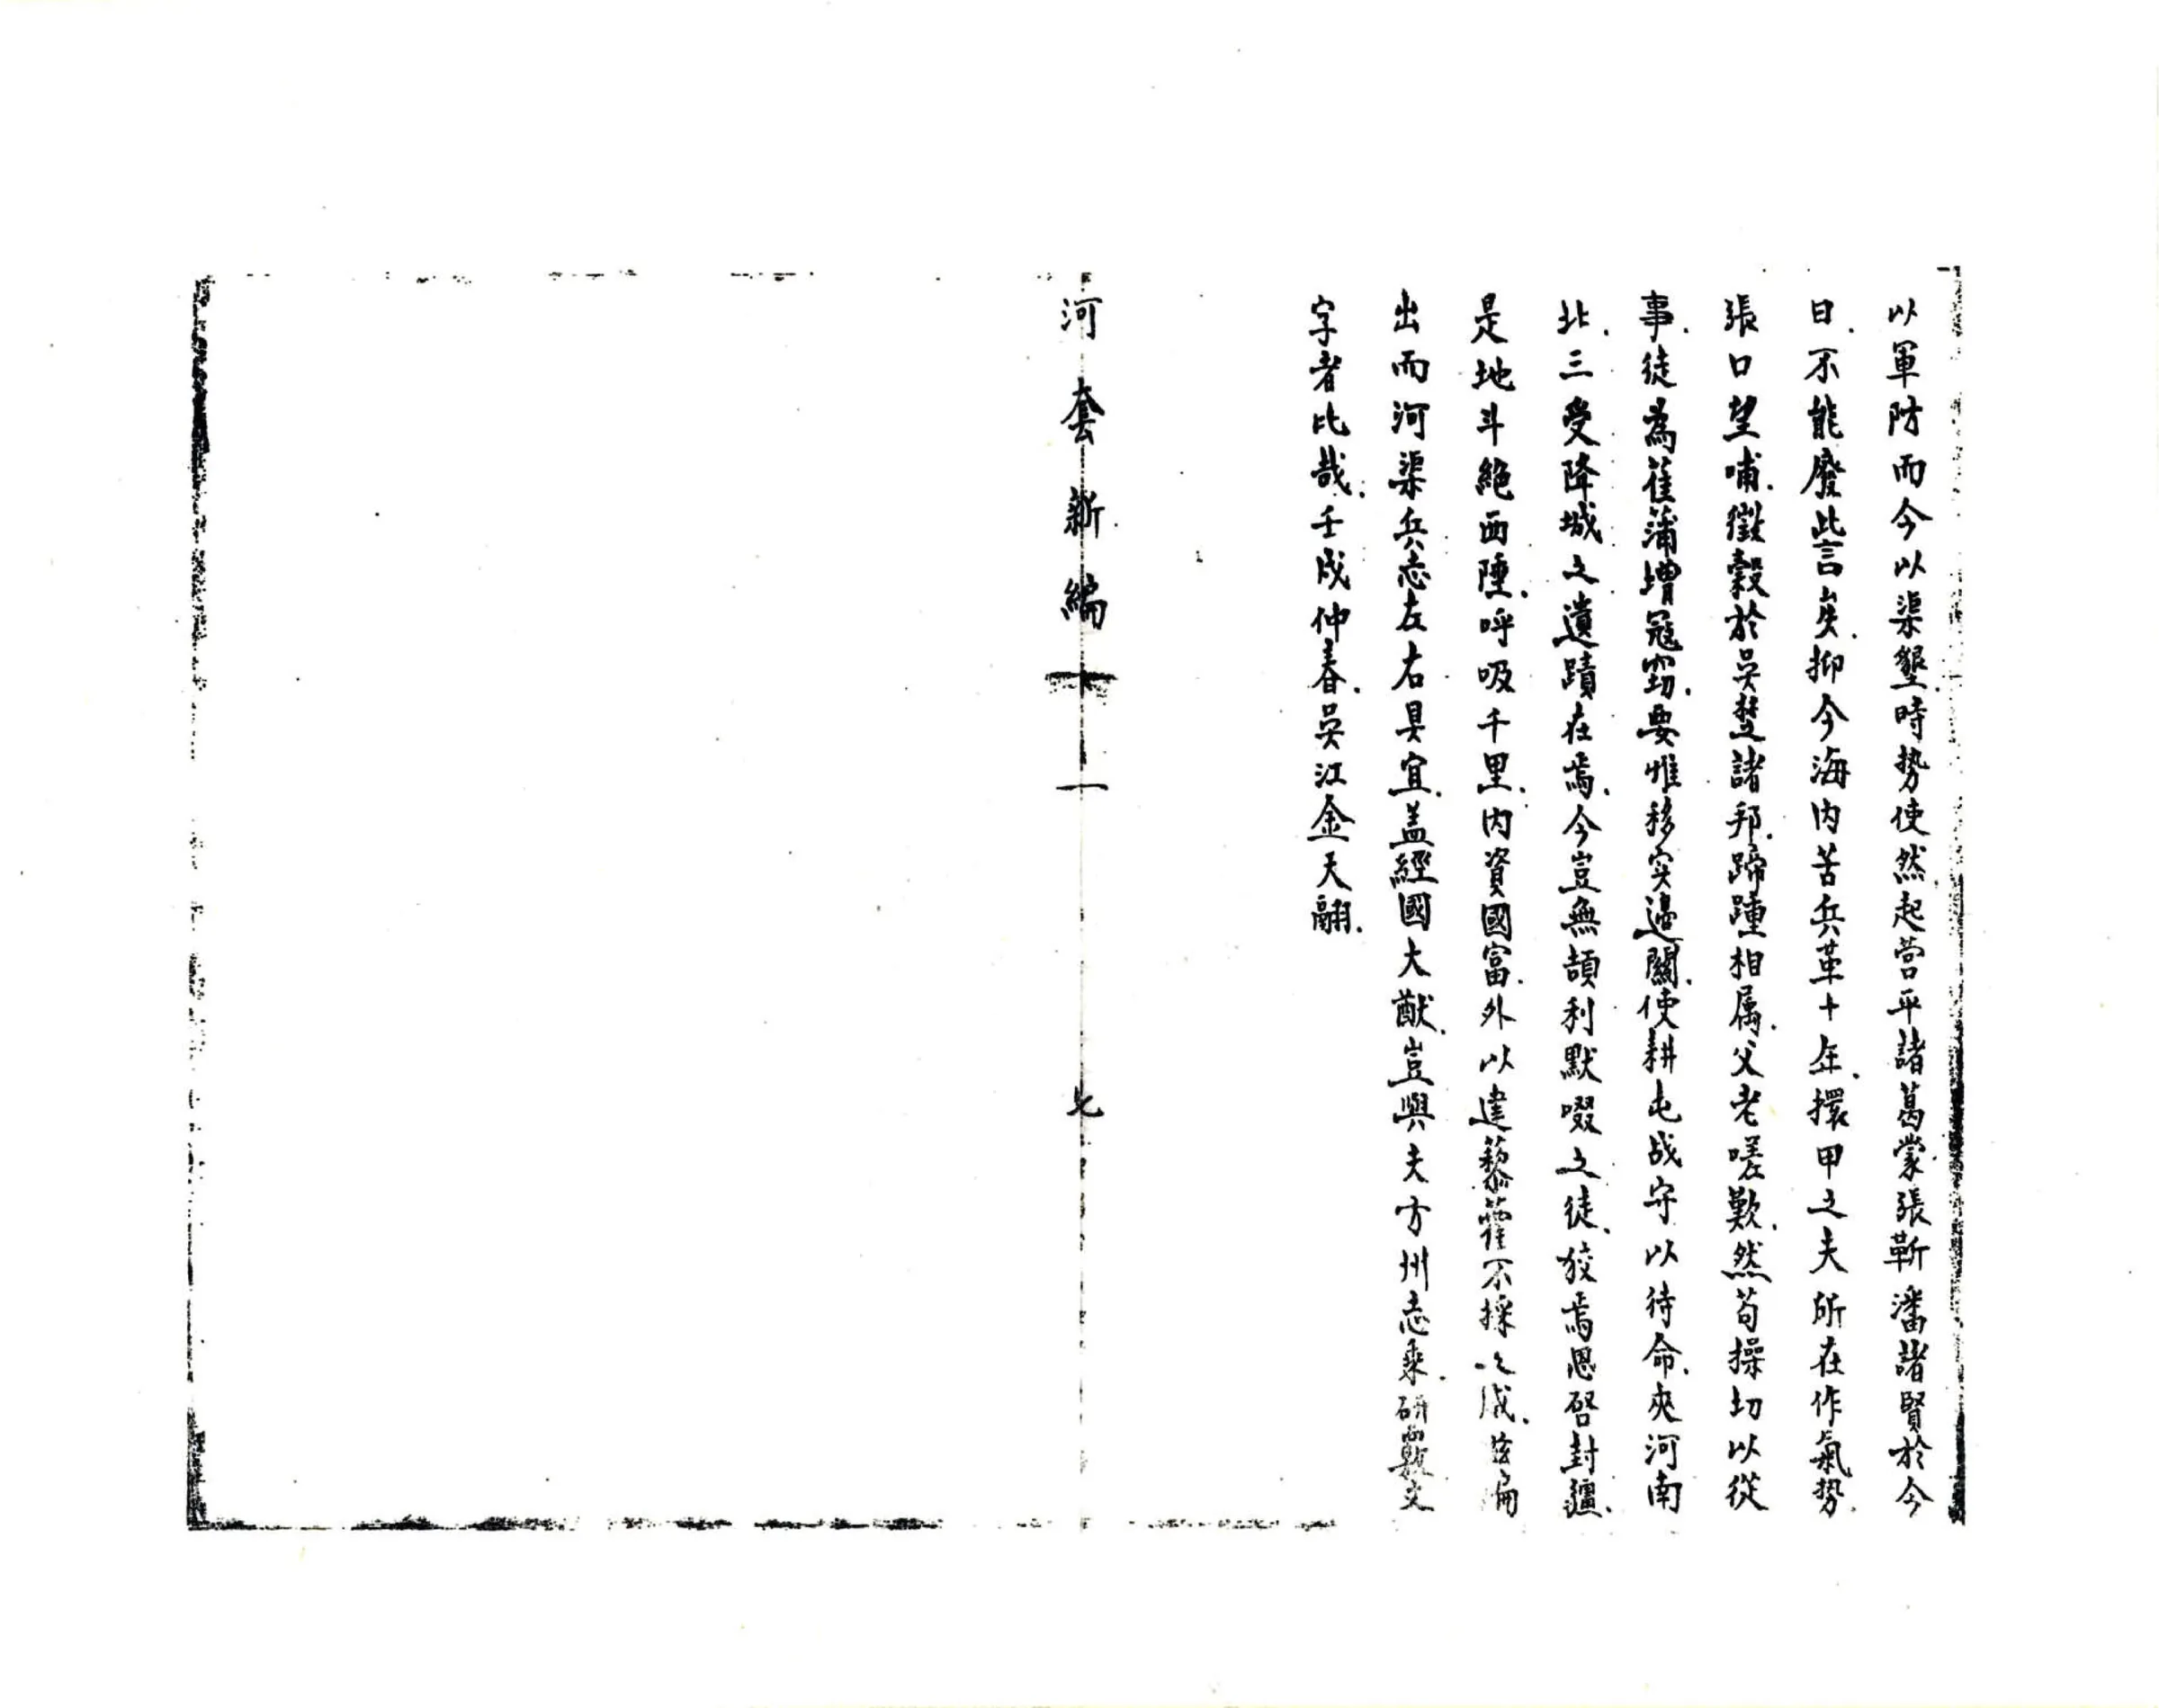 以軍防而今以渠墾.時勢使然.起营平諸葛蒙.張靳潘諸賢於今
日.不能廢此言矣.抑今海內苦兵革十年.擐甲之夫所在作氣勢.
張口望哺.徵穀於吳楚諸邦.蹄踵相属.父老嗟歎.然苟操切以從
事.徒為萑蒲增寇.要惟移实邊關.使耕屯战守以待命.夾河南
北.三受降城之遺蹟在焉.今豈無頡利默啜之徒.狡焉思啓封疆.
是地斗絕西陲.呼吸千里.內資國富.外以建藜藿不採之成.玆扁
出而河渠兵志左右具宜.盖經國大猷.豈與夫方州志乘.研覈文
字者比哉.壬戌仲春.吳江金天翮.
河套新編
十一
七